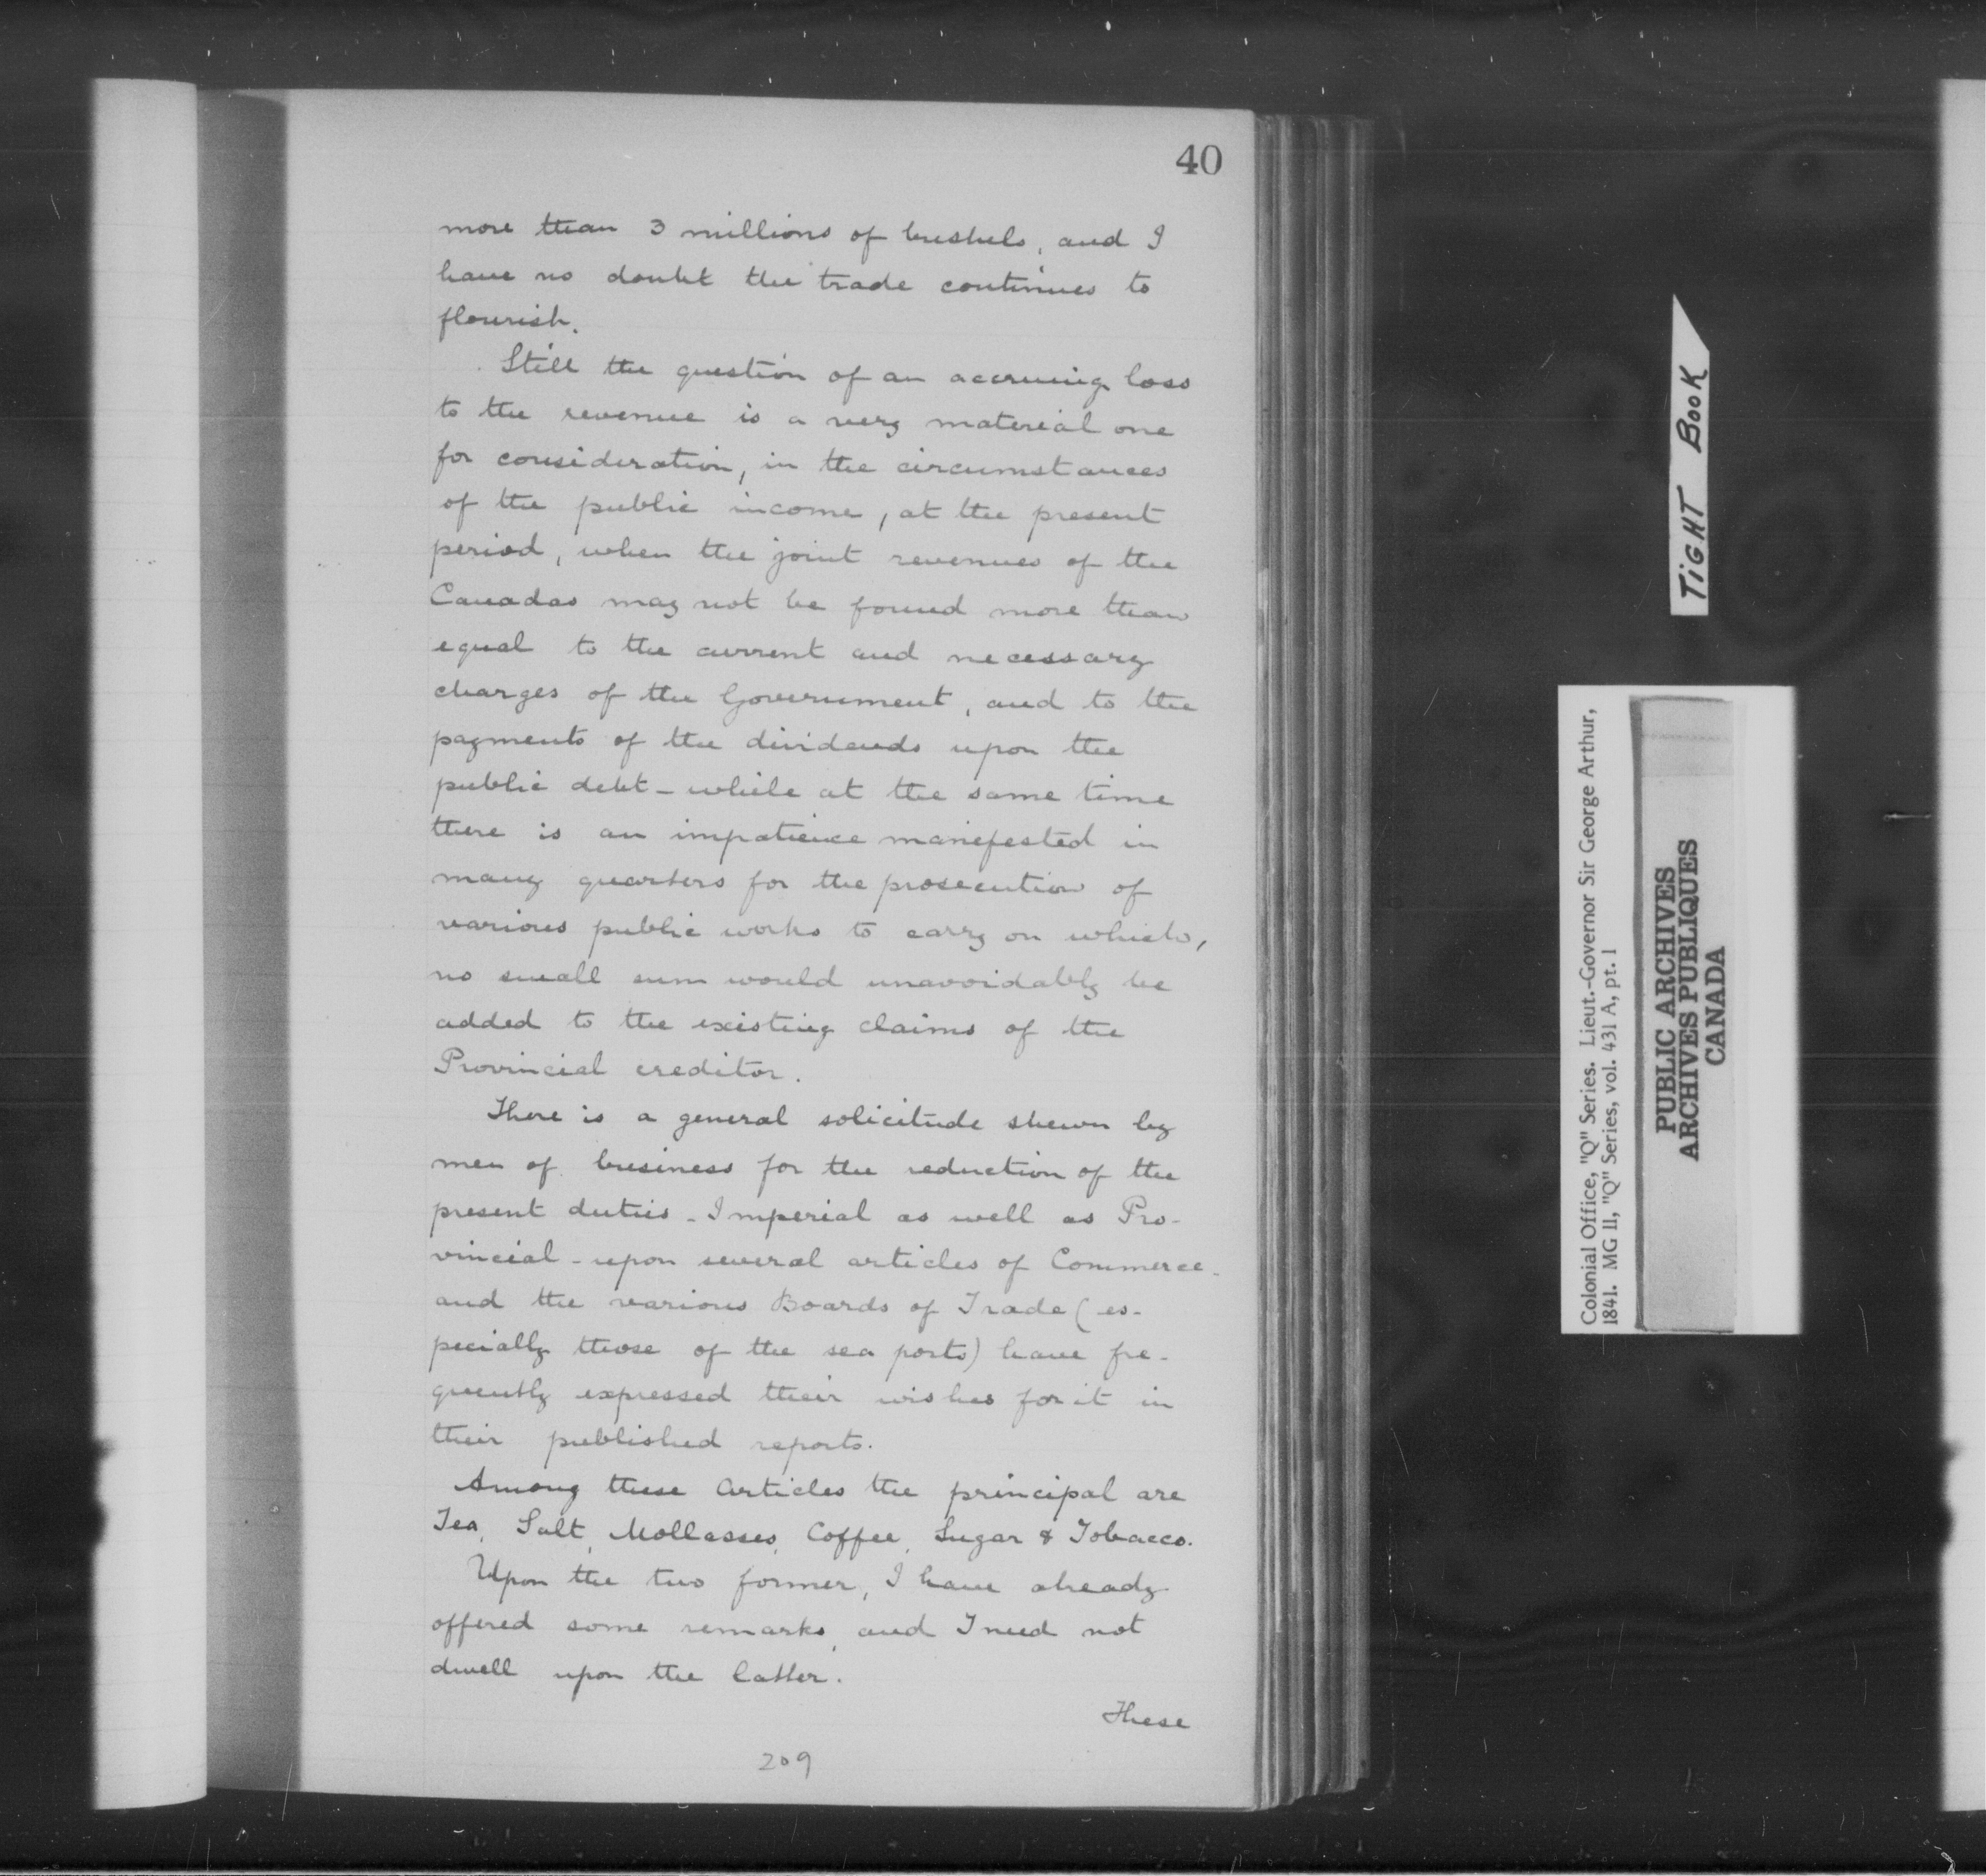 40
more than 3 millions of bushels, and I
have no doubt the trade continues to
flourish.
Still the question of an accruing loss
to the revenue is a very material one
for consideration, in the circumstances
of the public income, at the present
period, when the joint revenues of the
Canadas may not be found more than
equal to the current and necessary
charges of the Government, and to the
payments of the dividends upon the
public debt - while at the same time
there is an impatience manifested in
many quarters for the prosecution of
various public works to carry on which,
no small sum would unavoidably be
added to the existing claims of the
Provincial creditor.
There is a general solicitude shewn by
men of business for the reduction of the
present duties - Imperial as well as Pro-
vincial - upon several articles of Commerce -
and the various Boards of Trade (es-
pecially those of the sea ports) have fre-
quently expressed their wishes for it in
their published reports.
Among these Articles the principal are
Tea, Salt, Mollasses, Coffee, Sugar & Tobacco.
Upon the two former, I have already
offered some remarks, and I need not
dwell upon the latter.
These
209
TIGHT BOOK
Colonial Office, "Q" Series. Lieut.-Governor Sir George Arthur,
1841. MG 11, "Q" Series, vol. 431 A, pt. 1
PUBLIC ARCHIVES
ARCHIVES PUBLIQUES
CANADA